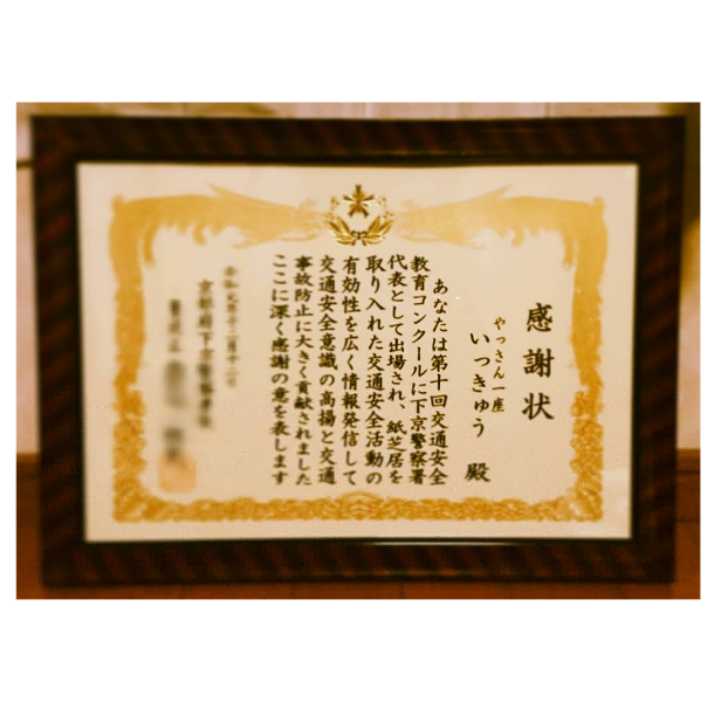 感謝状
やっさん一座
いっきゅう 殿
あなたは第十回交通安全
教育コンクールに下京警察署
代表として出場され、紙芝居を
取り入れた交通安全活動の
有効性を広く情報発信して
交通安全意識の高揚と交通
事故防止に大きく貢献されました
ここに深く感謝の意を表します
令和元年十二月十二日
京都府下京警察署長